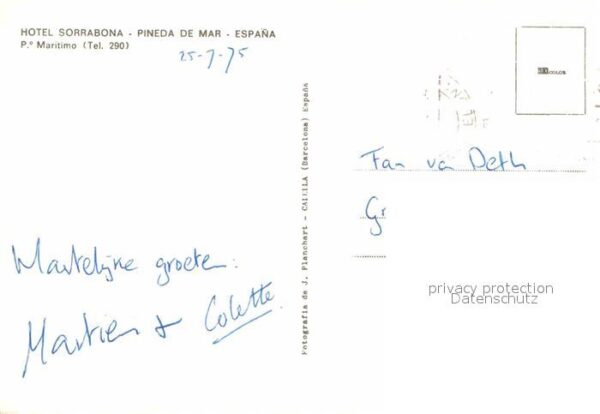 HOTEL SORRABONA - PINEDA DE MAR - ESPAÑA
P.º Marítimo (Tel. 290)
25-7-75
Hartelijke groeten.
Martien & Colette.
Fotografía de J. Planchart - CALELLA (Barcelona) España
COLOR
Fam van Deth
Gr
privacy protection
Datenschutz